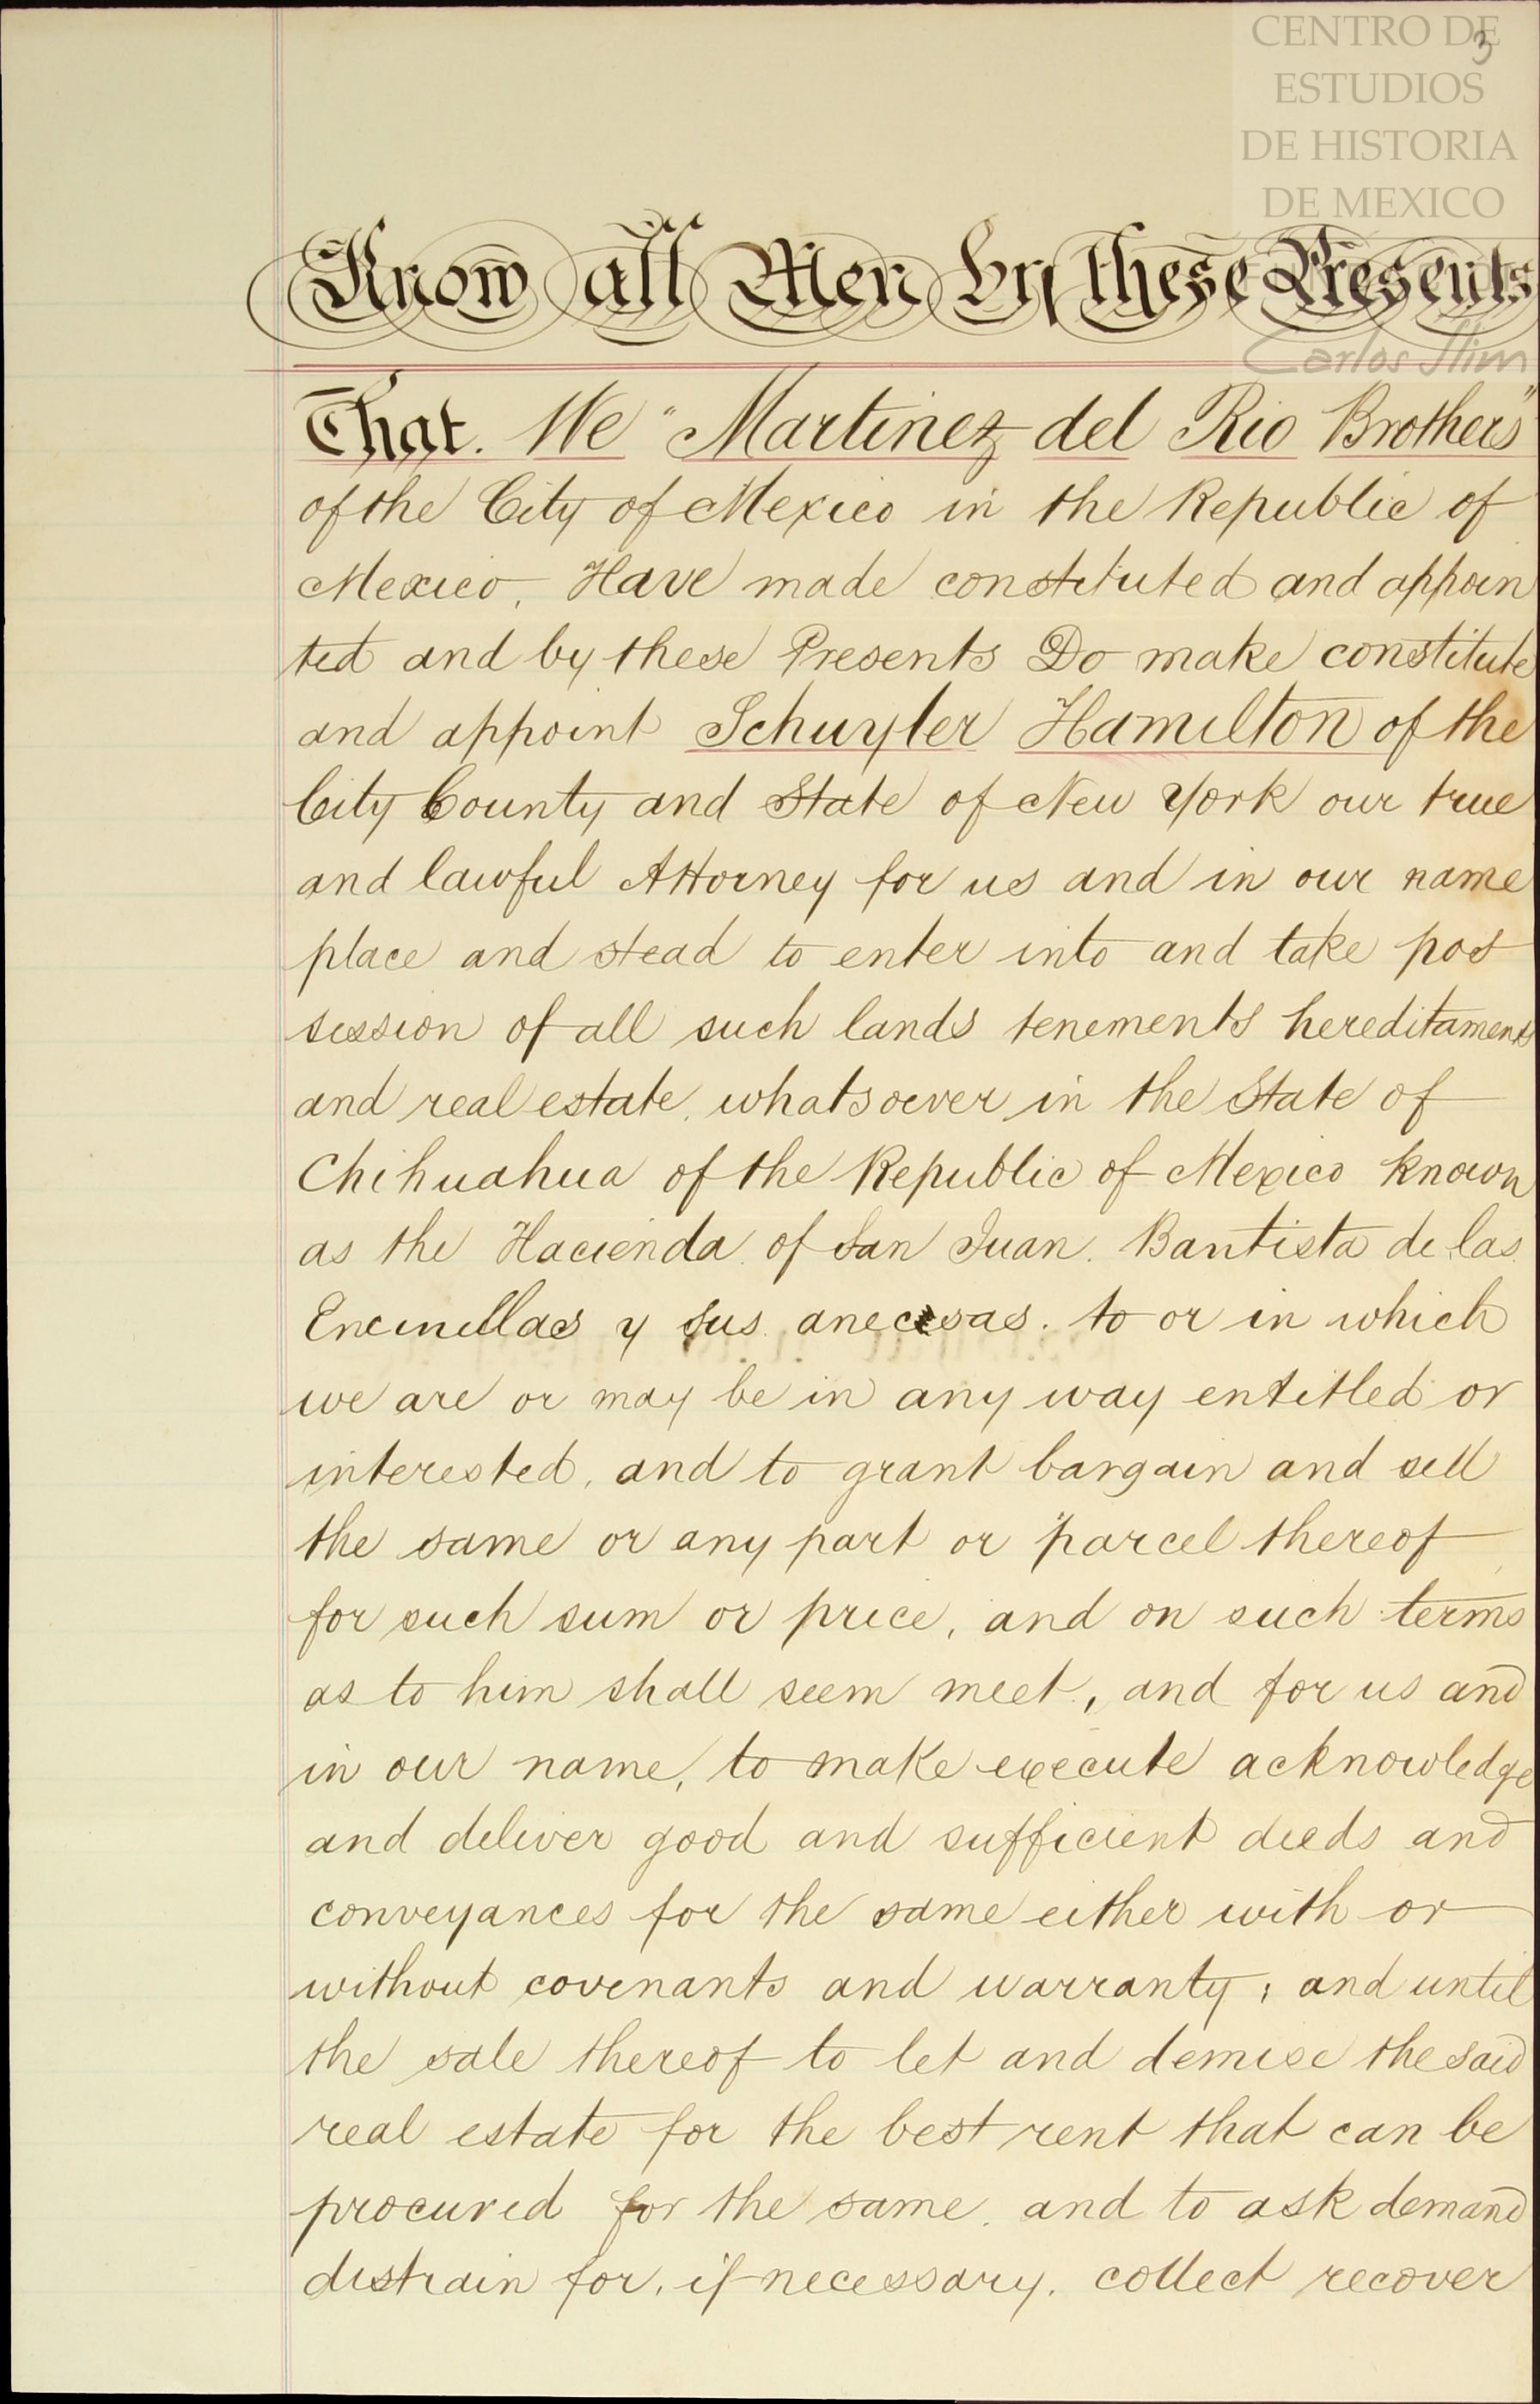 CENTRO DE
3
ESTUDIOS
DE HISTORIA
DE MEXICO
Know all Men by these Presents
Carlos Slim
That. We "Martinez del Rio Brothers"
of the City of Mexico in the Republic of
Mexico, Have made constituted and appoin
ted and by these Presents Do make constitute
and appoint Schuyler Hamilton of the
City County and State of New York our true
and lawful Attorney for us and in our name
place and stead to enter into and take pos
session of all such lands tenements hereditaments
and real estate, whatsoever in the State of
Chihuahua of the Republic of Mexico known
as the Hacienda of San Juan. Bautista de las
Encinillas y sus anecsas. to or in which
we are or may be in any way entitled or
interested, and to grant bargain and sell
the same or any part or parcel thereof
for such sum or price, and on such terms
as to him shall seem meet, and for us and
in our name, to make execute acknowledge
and deliver good and sufficient deeds and
conveyances for the same either with or
without covenants and warranty; and until
the sale thereof to let and demise the said
real estate for the best rent that can be
procured for the same. and to ask demand
distrain for, if necessary. collect recover